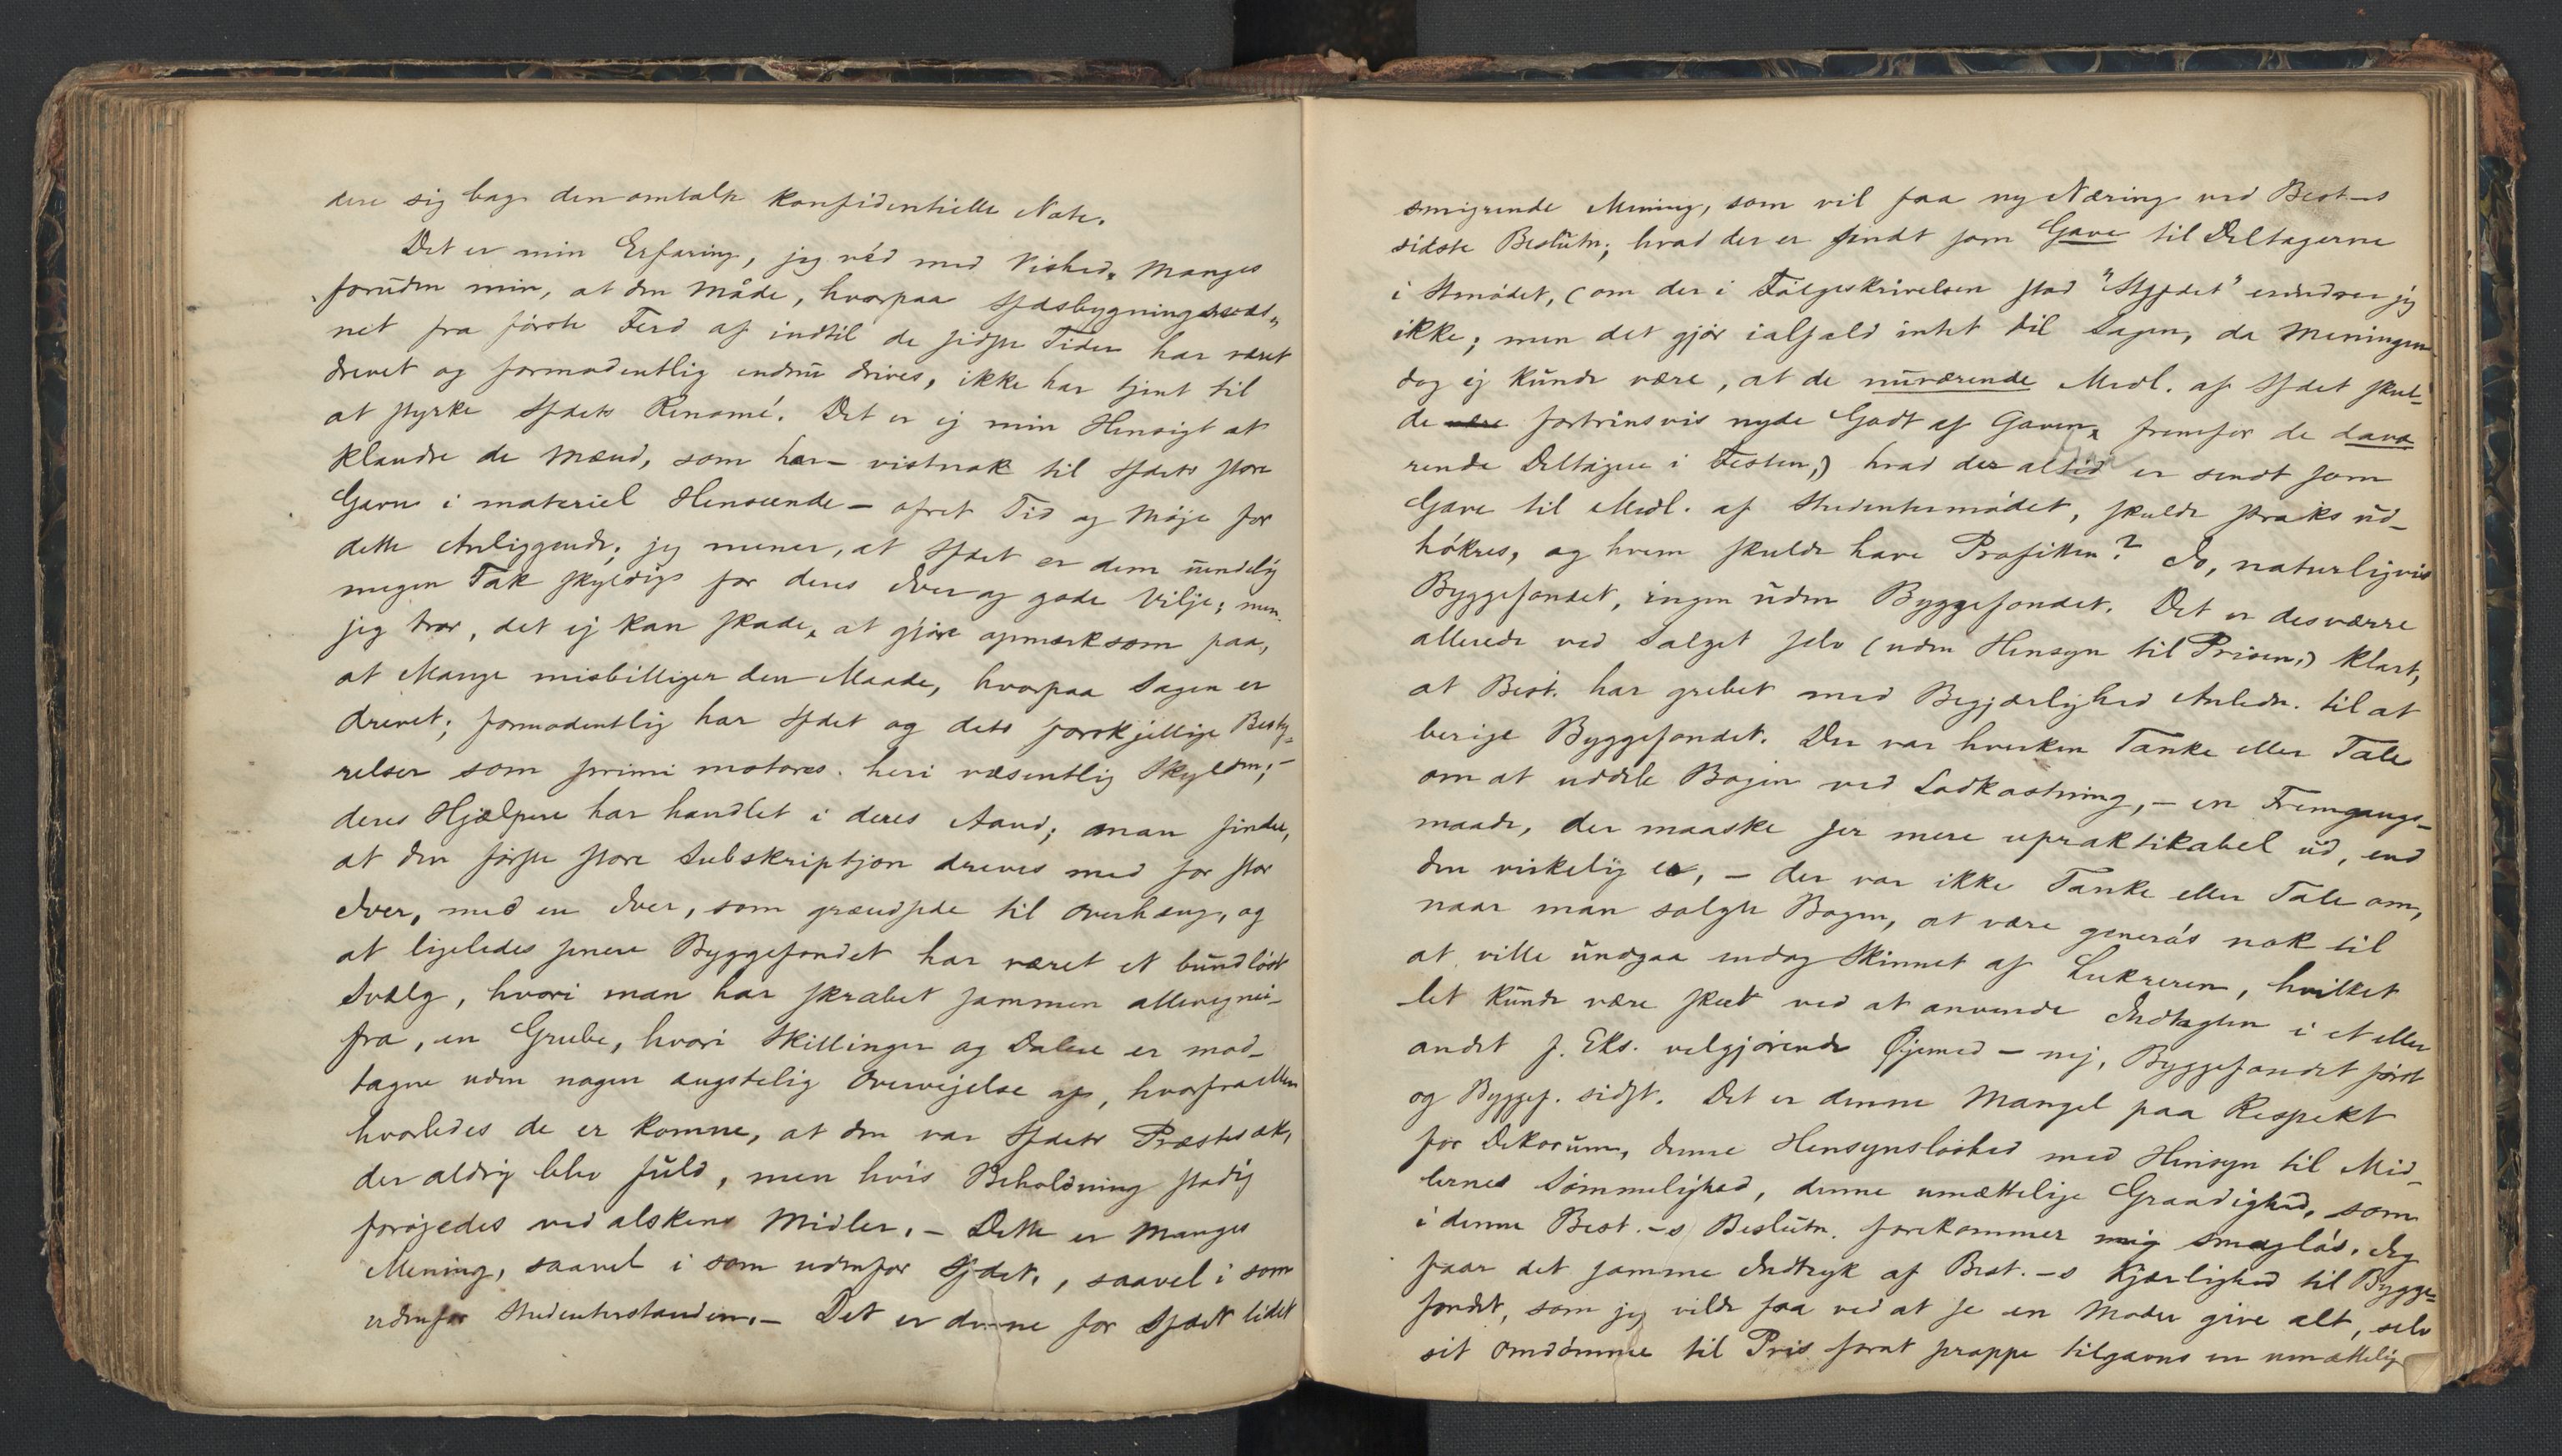 dere sig bag den omtalte konfidentielle Note.
Det er min Erfaring, jeg véd med Vished, Manges
foruden min, at den Måde, hvorpaa Sfdsbygningsvæs-
net fra først Ferd af indtil de sidste Tider har været
drevet og formodentlig endnu drives, ikke har tjent til
at styrke Sfdets Renomé. Det er ej min Hensigt at
klandre de Mænd, som har – vistnok til Sfdets store
Gavn i materiel Henseende – ofret Tid og Møje for
dette Anliggende; jeg mener, at Sfdet er dem uendelig
megen Tak skyldig for deres Iver og gode Vilje; men
jeg tror, det ej kan skade, at gjøre opmærksom paa,
at Mange misbilliger den Maade, hvorpaa Sagen er
drevet; formodentlig har Sfdet og dets forskjellige Besty-
relser som primi motores heri væsentlig Skylden; –
deres Hjælpere har handlet i deres Aand; man finder,
at den første store Subskriptjon dreves med for stor
Iver, med en Iver, som grændsede til Overhæng, og
at ligeledes senere Byggefondet har været et bundløst
Svælg, hvori man har skrabet sammen allevegnei-
fra, en Grube, hvori Skillinger og Dalere er mod-
tagne uden nogen ængstelig Overvejelse af, hvorfra eller
hvorledes de er komne, at den var Sfdets Præstesæk,
der aldrig blev fuld, men hvis Beholdning stadig
forøjedes ved alskens Midler. – Dette er Manges
Mening, saavel i som udenfor Sfdet, saavel i som
udenfor Studenterstanden. – Det er denne for Sfdet lidet
smigrende Mening, som vil faa ny Næring ved Best-s
sidste Beslutn; hvad der er sendt som Gave til Deltagerne
i Stmødet, (om der i Følgeskrivelsen stod "Stsfdet" erindrer jeg
ikke; men det gjør ialfald intet til Sagen, da Meningen
dog ej kunde være, at de nuværende Medl. af Sfdet skul-
de være fortrinsvis nyde Godt af Gaven, fremfor de davæ
rende Deltagere i Festen,) hvad der altid er sendt som
Gave til Medl. af Studentermødet, skulde straks ud-
høkres, og hvem skulde have Profitten? Jo, naturligvis
Byggefondet, ingen uden Byggefondet. Det er desværre
allerede ved Salget selv (uden Hensyn til Prisen,) klart,
at Best. har grebet med Begjærlighed Anledn. til at
berige Byggefondet. Der var hverken Tanke eller Tale
om at uddele Bogen ved Lodkastning, – en Fremgangs-
maade, der maaske ser mere upraktikabel ud, end
den virkelig er, – der var ikke Tanke eller Tale om,
naar man solgte Bogen, at være generøs nok til
at ville undgaa endog Skinnet af Lukreren, hvilket
let kunde være skeet ved at anvende Indtægten i et eller
andet f. Eks. velgjørende Øjemed – nej, Byggefondet først
og Byggef. sidst. Det er denne Mangel paa Respekt
for Dekorum, denne Hensynsløshed med Hensyn til Mid-
lernes Sømmelighed, denne umættelige Graadighed, som
i denne Best.-s Beslutn. forekommer mig smagløs. Jeg
faar det samme Indtryk af Best.-s Kjærlighed til Bygge-
fondet, som jeg vilde faa ved at se en Moder give alt, selv
sit Omdømme til Pris forat proppe tilgavns en umættelig